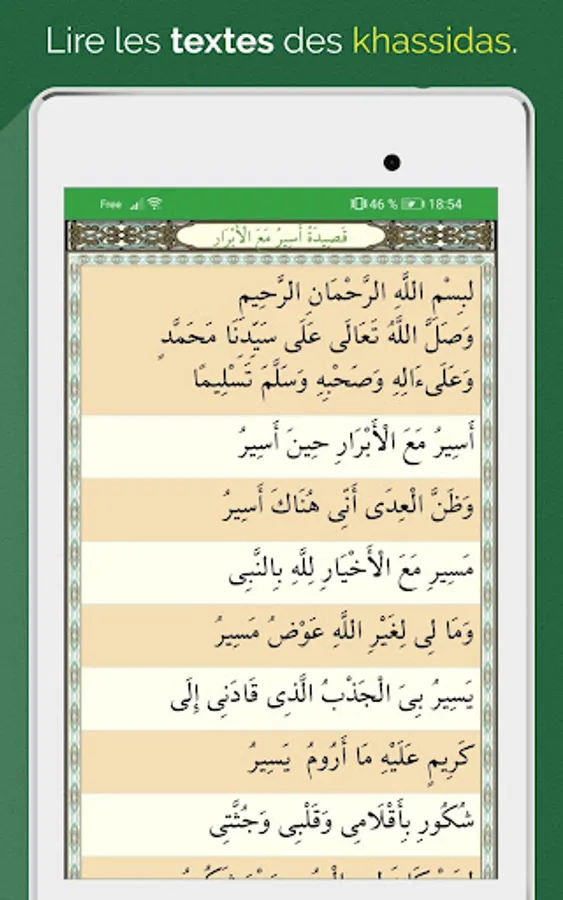 Lire les textes des khassidas.
Free 46 % 18:54
قَصِيدَةُ أَسِيرُ مَعَ الْأَبْرَارِ
لبِسْمِ اللَّهِ الرَّحْمَانِ الرَّحِيمِ
وَصَلَّ اللَّهُ تَعَالَى عَلَى سَيِّدِنَا مَحَمَّدٍ
وَعَلَىءَالِهِ وَصَحْبِهِ وَسَلَّمَ تَسْلِيمًا
أَسِيرُ مَعَ الْأَبْرَارِ حِينَ أَسِيرُ
وَظَنَّ الْعِدَى أَنِّى هُنَاكَ أَسِيرُ
مَسِيرِ مَعَ الْأَخْيَارِ لِلَّهِ بِالنَّبِى
وَمَا لِى لِغَيْرِ اللَّهِ عَوْضُ مَسِيرُ
يَسِيرُ بِىَ الْجَذْبُ الَّذِى قَادَنِى إِلَى
كَرِيمٍ عَلَيْهِ مَا أَرُومُ يَسِيرُ
شُكُورِ بِأَقْلَامِى وَقَلْبِى وَجُثَّتِى